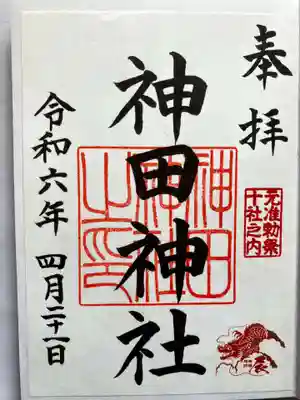 奉拝
元准勅祭
十社之内
神田神社
神田
神社
之印
辰
令和六年 四月二十一日